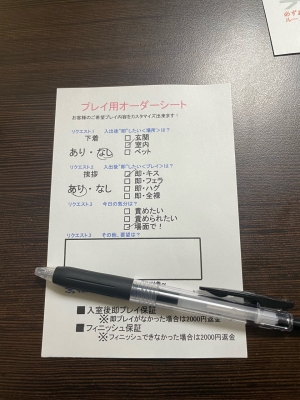 プレイ用オーダーシート
お客様のご希望プレイ内容をカスタマイズ出来ます!
リクエスト.1 入出後"即"したいく場所>は?
下着 □ 玄関
☑ 室内
あり・なし □ ベット
リクエスト.2 入出後"即"したいくプレイ>は?
挨拶 ☑ 即・キス
□ 即・フェラ
あり・なし □ 即・ハグ
□ 即・全裸
リクエスト.3 今日の気分は?
□ 責めたい
□ 責められたい
☑ 場面で!
リクエスト.3 その他、要望は?
■ 入室後即プレイ保証
※即プレイがなかった場合は2000円返金
■ フィニッシュ保証
※フィニッシュできなかった場合は2000円返金